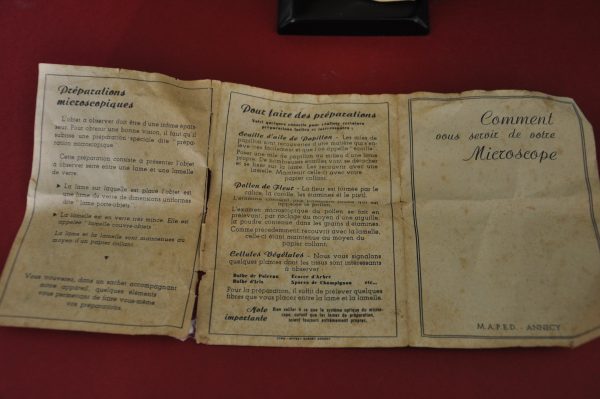 Préparations
microscopiques
L'objet à observer doit être d'une infime épais-
seur. Pour obtenir une bonne vision, il faut qu'il
subisse une préparation spéciale dite " prépa-
ration microscopique
Cette préparation consiste à présenter l'objet
à observer serré entre une lame et une lamelle
de verre.
La lame sur laquelle est placé l'objet est
une lame du verre de dimensions uniformes
dite " lame porte-objets "
La lamelle est en verre très mince. Elle est
appelée " lamelle couvre-objets
La lame et la lamelle sont maintenues au
moyen d'un papier collant.
Vous trouverez, dans un sachet accompagnant
votre appareil, quelques éléments
vous permettant de faire vous-même
vos préparations.
Pour faire des préparations
Voici quelques conseils pour réaliser certaines
préparations faciles et intéressantes :
Ecaille d'aile de Papillon - Les ailes de
papillon sont recouvertes d'une matière qui s'en-
lève très facilement et que l'on appelle "écaille".
Poser une aile de papillon au milieu d'une lame
propre. De nombreuses écailles vont se détacher
et se fixer sur la lame. Les recouvrir avec une
lamelle. Maintenir celle-ci avec votre
papier collant.
Pollen de Fleur - La fleur est formée par le
calice, la corolle, les étamines et le pistil.
appelle le pollen.
L'examen microscopique du pollen se fait en
prélevant, par raclage au moyen d'une aiguille,
la poudre contenue dans les grains d'étamines.
Comme précédemment recouvrir avec la lamelle,
celle-ci étant maintenue au moyen du
papier collant.
Cellules Végétales - Nous vous signalons
quelques plantes dont les tissus sont intéressants
à observer :
Bulbe de Poireau Ecorce d'Arbre
Bulbe d'Iris Spores de Champignon etc...
Pour la préparation, il suffit de prélever quelques
fibres que vous placez entre la lame et la lamelle.
Note
importante
Bien veiller à ce que le système optique du micros-
cope, autant que les lames de préparation,
soient toujours extrêmement propres.
Comment
vous servir de votre
Microscope
M.A.P.E.D. - ANNECY